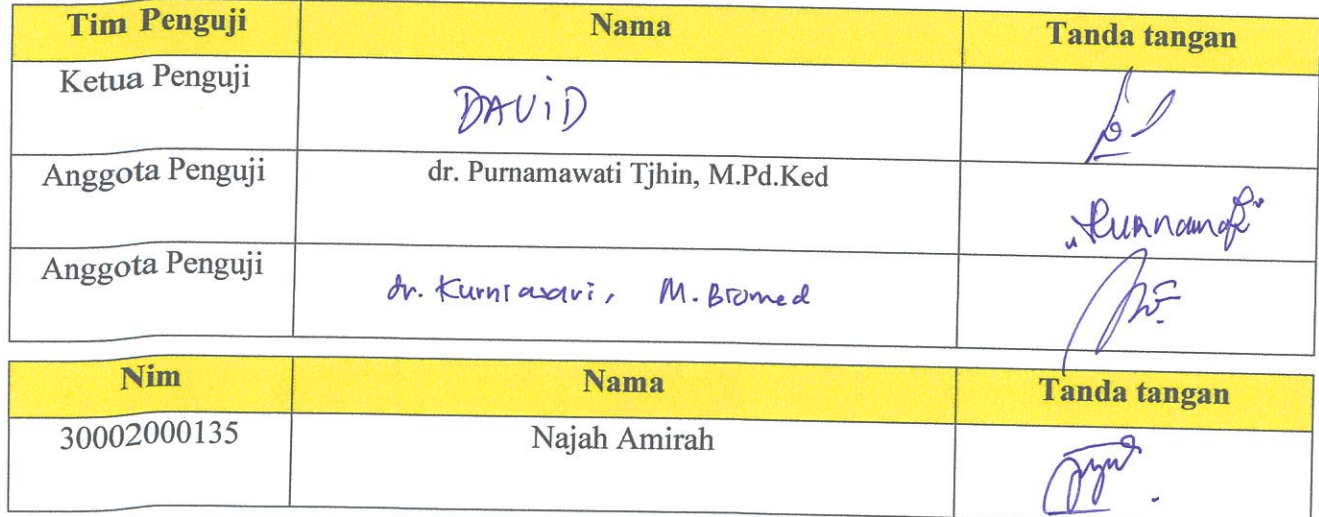 Tim Penguji Nama Tanda tangan
Ketua Penguji DAViD
Anggota Penguji dr. Purnamawati Tjhin, M.Pd.Ked
Anggota Penguji dr. Kurniasari, M. Biomed
Nim Nama Tanda tangan
30002000135 Najah Amirah